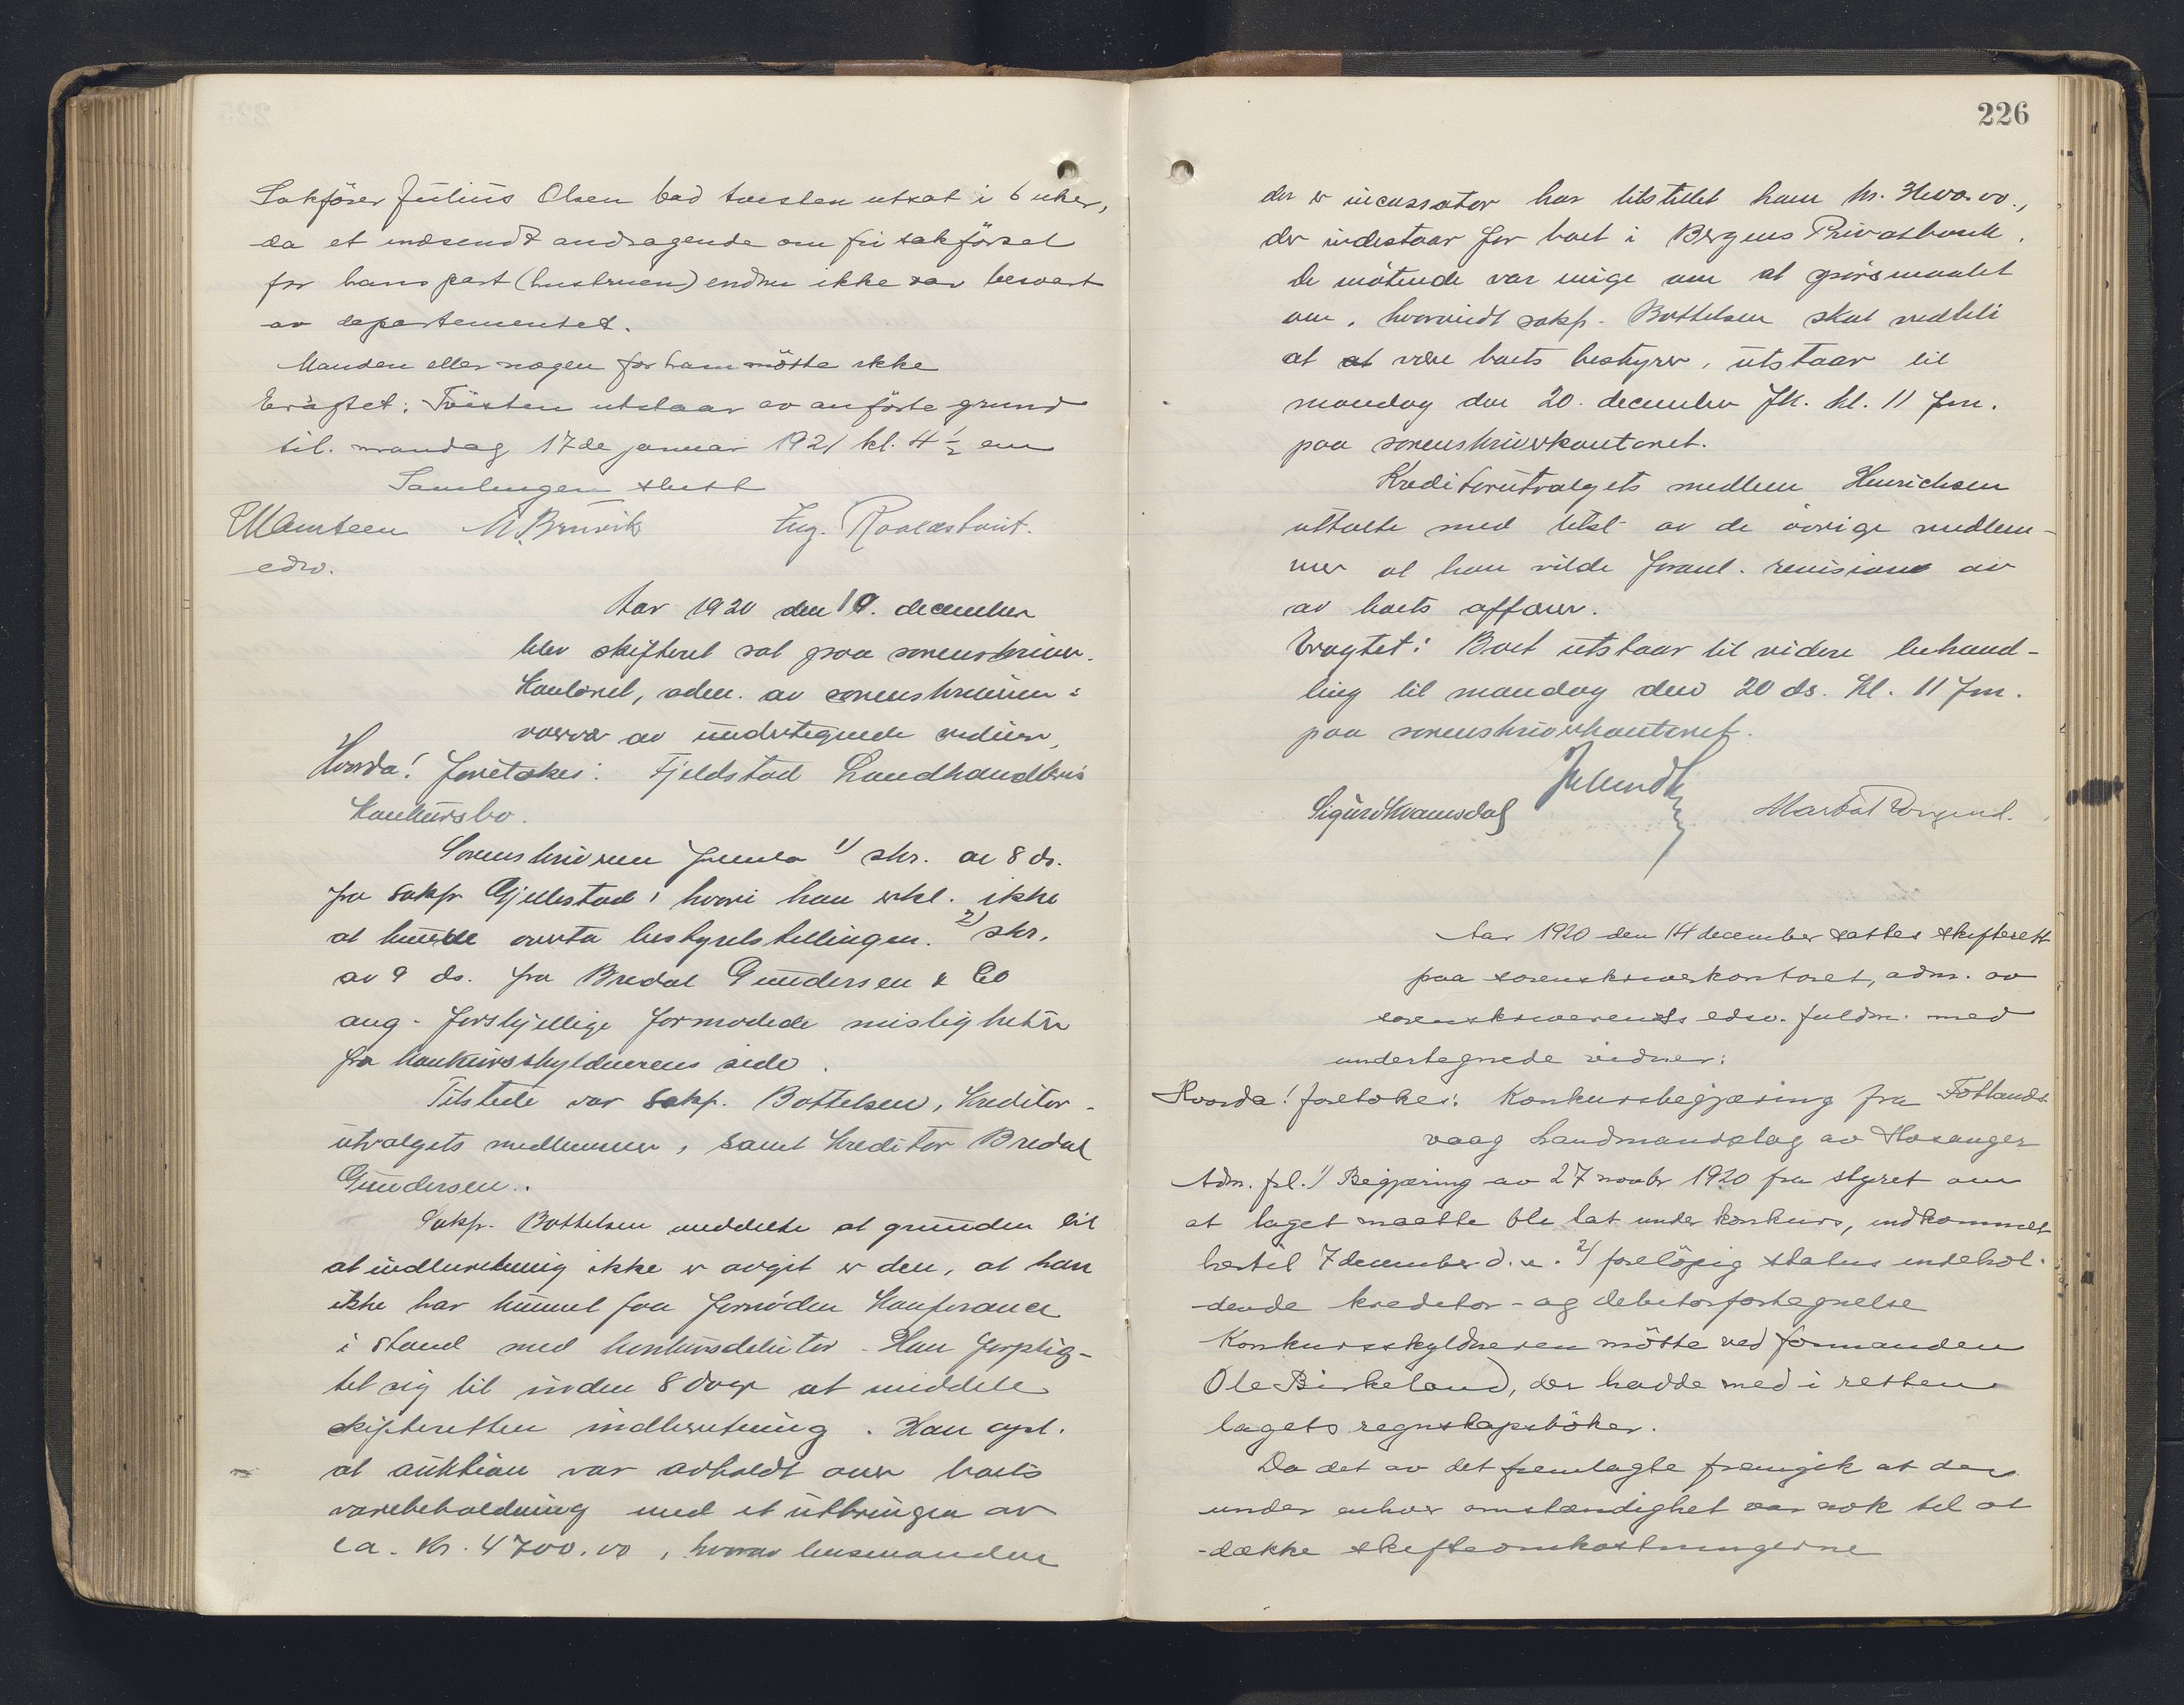 Sakfører Julius Olsen bad tvisten utsat i 6 uker,
da et indsendt andragende om fri sakførsel
for hans part (hustruen) endnu ikke var besvart
av departementet.
Manden eller nogen for ham møtte ikke
Eragtet: Tvisten utstaar av anførte grund
til mandag 17de januar 1921 kl. 4 ½ em
Samlingen slutt
M. Bruvik
edsv.
Aar 1920 den 10. december
blev skifteret sat paa sorenskriver-
kontoret, adm. av sorenskriveren
overvær av undertegnede vidner,
Hvorda! foretokes: Fjeldstad Landhandleris
Konkursbo.
Sorenskriveren fremla 1) skr. av 8 ds.
fra sakf. Gjellestad i hvori han erkl. ikke
at kunde overta bestyrelstillingen. 2) skr.
av 9 ds. fra Bredal Gundersen & Co
ang. forskjellige formodede misligheter
fra konkursskyldnerens side.
Tilstede var sakf. Bottelsen, Kreditor-
utvalgets medlemmer, samt Kreditor Bredal
Gundersen.
Sakf. Bottelsen meddelte at grunden til
at indberetning ikke er avgit er den, at han
ikke har kunnet faa fornøden Konferance
i stand med konkursdebitor. Han forplig-
tet sig til inden 8 dage at meddele
skifteretten indberetning. Han opl.
at auktion var avholdt over boets
varebeholdning med et utbringen av
ca. Kr. 4700.00, hvorav lensmanden
226
der er incassator har tilstillet ham kr.
der indestaar for boet i Bergens Privatbank.
De møtende var enige om at spørsmaalet
om, hvorvidt sakf. Bottelsen skal vedbli
at at være boets bestyrer, utstaar til
mandag den 20. december fk. kl. 11 fm.
paa sorenskriverkontoret.
Kreditorutvalgets medlem Hinrichsen
uttalte med tilsl. av de øvrige medlem-
mer at han vilde foranl. revision av
av boets affærer.
Eragtet: Boet utstaar til videre behand-
ling til mandag den 20 ds. kl. 11 fm.
paa sorenskriverkontoret.
Sigurd Kvamsdal
Aar 1920 den 14 december sattes skifterett
paa sorenskriverkontoret, adm. av
sorenskriverens edsv. fuldm. med
undertegnede vidner:
Hvorda! foretokes: Konkursbegjæring fra Fotlands-
vaag Landmandslag av Hosanger
Adm. frl. 1) Begjæring av 27 novbr 1920 fra styret om
at laget maatte bli tat under konkurs, indkommet
hertil 7 december d. a. 2) foreløpig status indehol-
dende kreditor- og debitorfortegnelse
Konkursskyldneren møtte ved formanden
Ole Birkeland, der hadde med i retten
lagets regnskapsbøker.
Da det av det fremlagte fremgik at der
under enhver omstændighet var nok til at
dække skifteomkostningerne